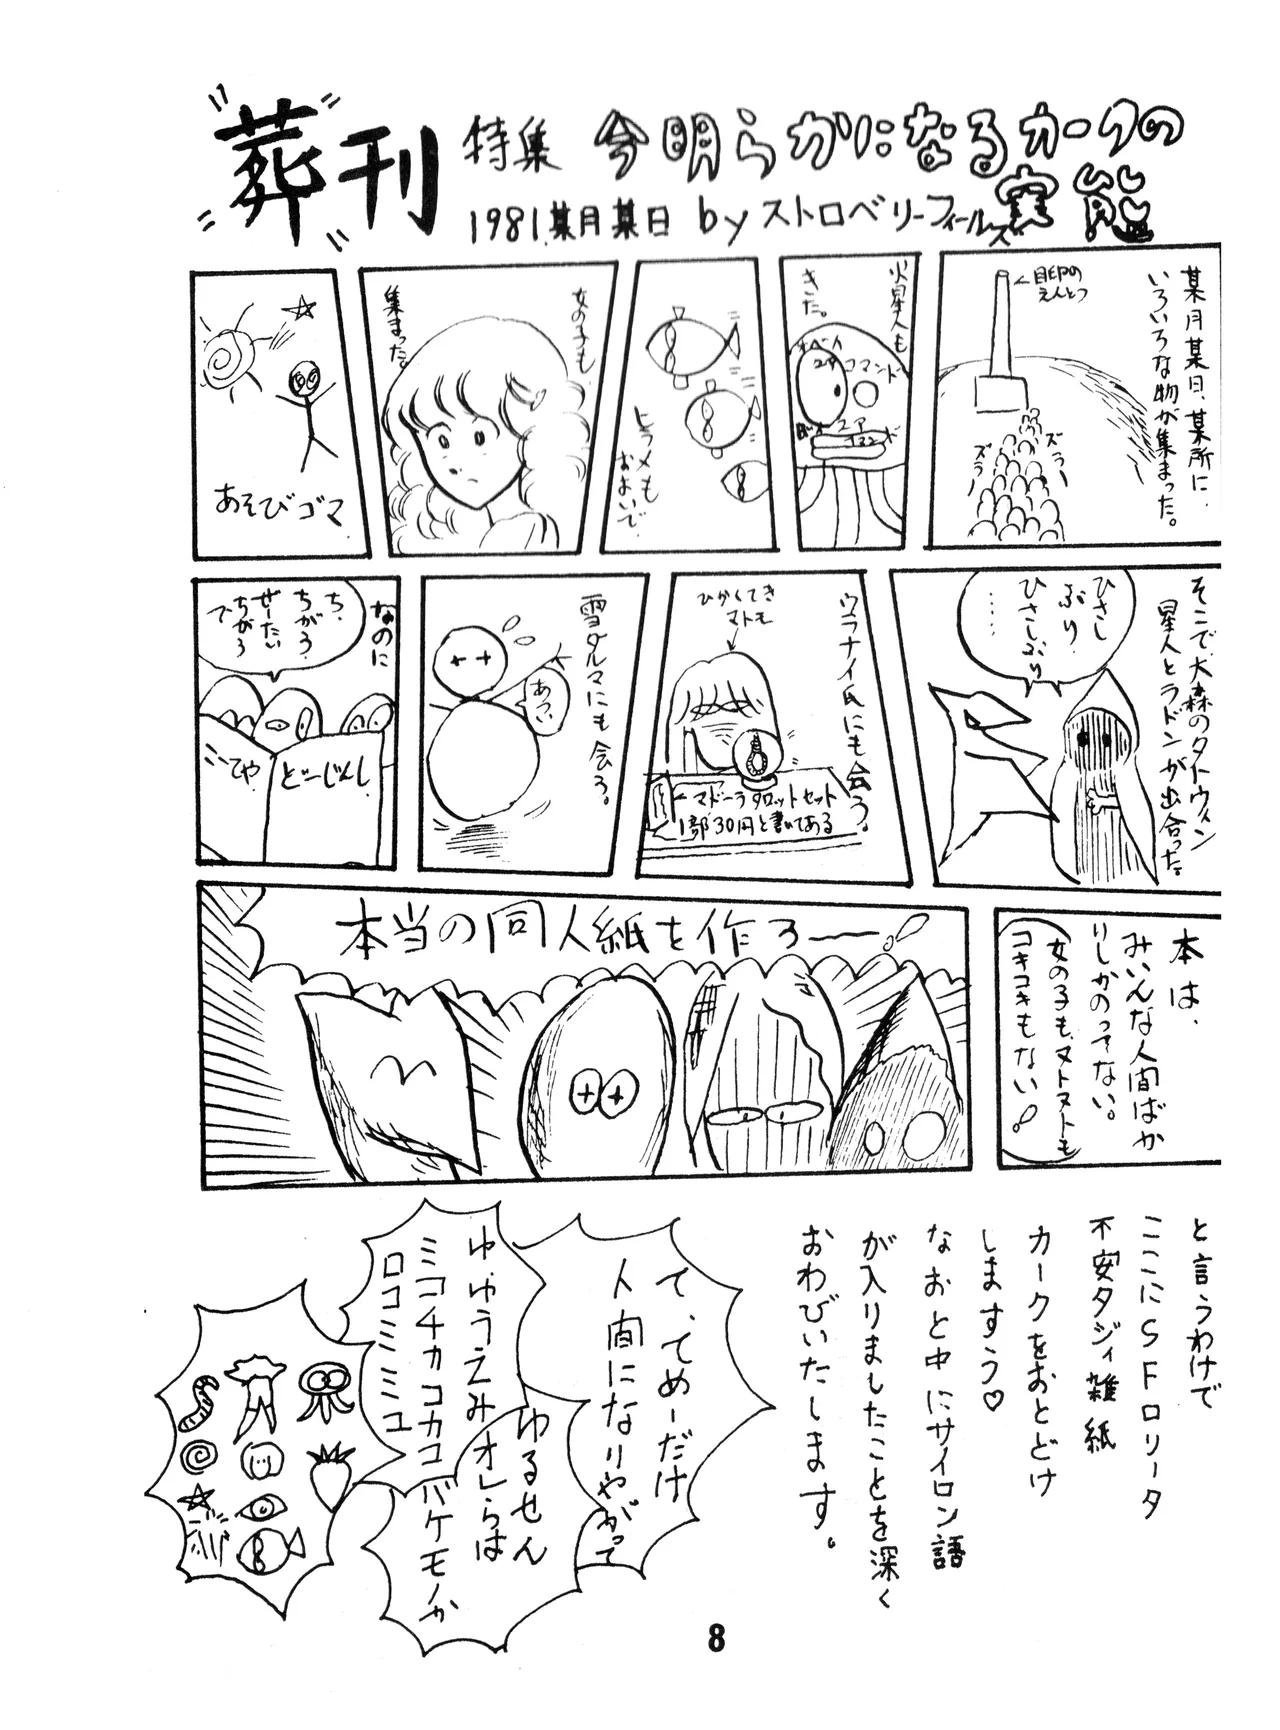 葬刊
特集 今明らかになるカークの
実態
1981.某月某日 by ストロベリーフィールズ
某月某日、某所に
いろいろな物が集まった。
←目印の
えんとつ
ズラ〜
ズラ〜
火星人も
きた。
コマンド
ヒラメも
おおいで
女の子も
集まった。
あそびゴマ
そこで、大森のタトウィン
星人とラドンが出合った。
ひさし
ぶり
ひさしぶり
……
ウラナイ氏にも会う。
ひかくてき
マトモ
←マドーラタロットセット
1部30円と書いてある
雪ダルマにも会う。
あつい
なのに
ち、
ちがう
ぜーたい
ちがう
で
こーてや
どーじんし
本は、
みいんな人間ばか
りしかのってない。
女の子も、ヌトヌトも
コキコキもない!
本当の同人紙を作ろー!
と言うわけで
ここにSFロリータ
不安タジィ雑紙
カークをおとどけ
しますう♡
なおと中にサイロン語
が入りましたことを深く
おわびいたします。
て、てめーだけ
人間になりやがって
ゆるせん
オレらは
バケモノか
ゆ、ゆうえみ
ミコチカコカコ
ロコミミユ
8